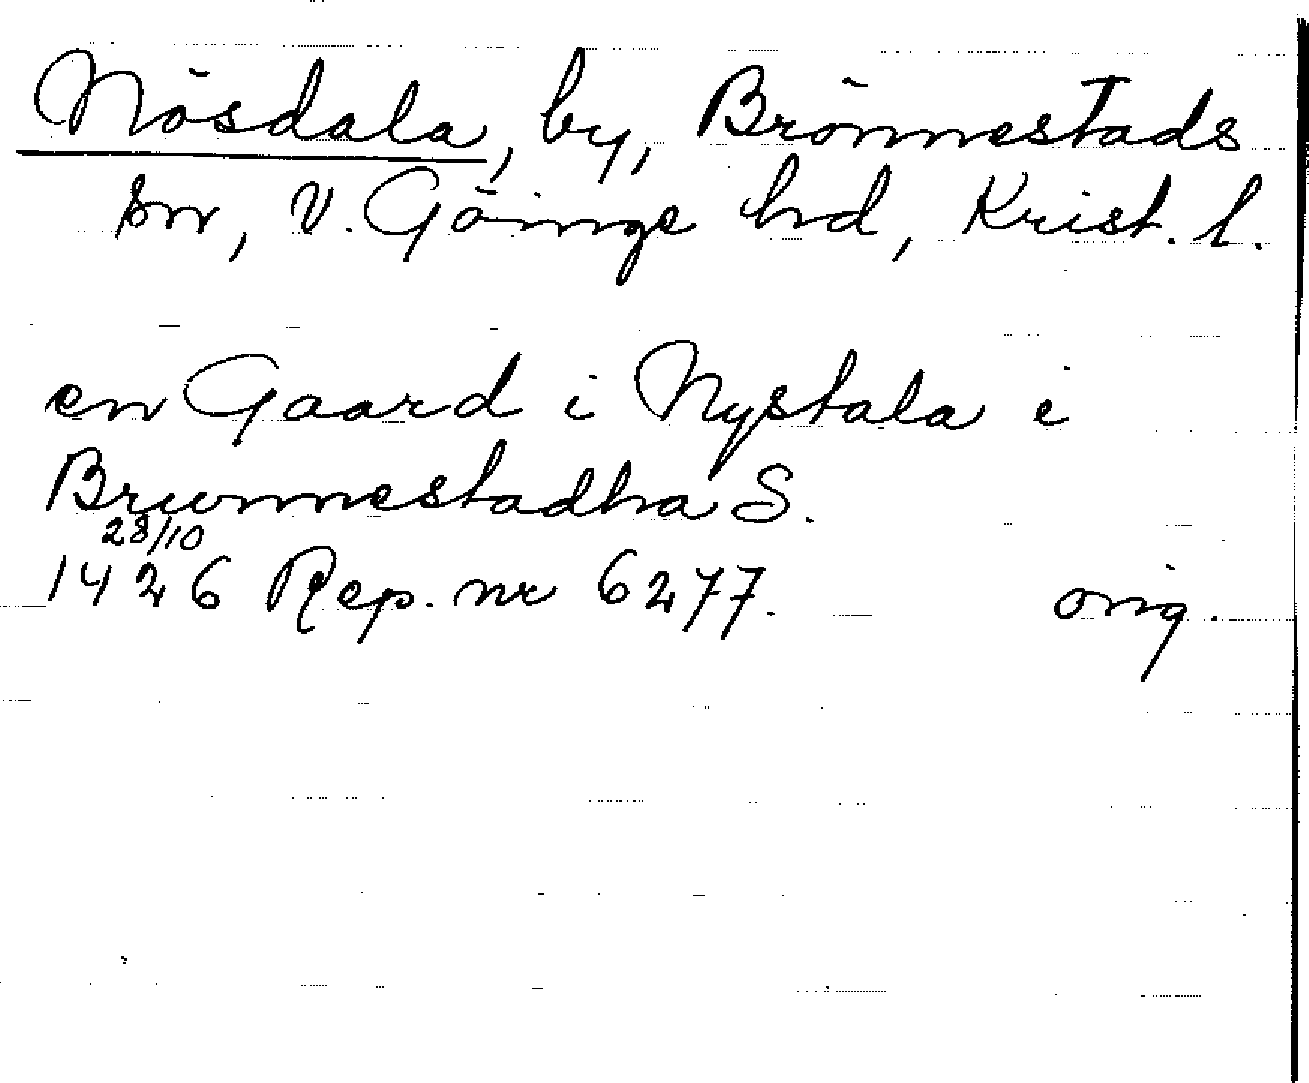 Nösdala, by, Brönnestads
sn, V. Göinge hd, Krist. l.
en Gaard i Nystala i
Brwnnestadha S.
28/10
1426 Rep. nr 6277. orig.